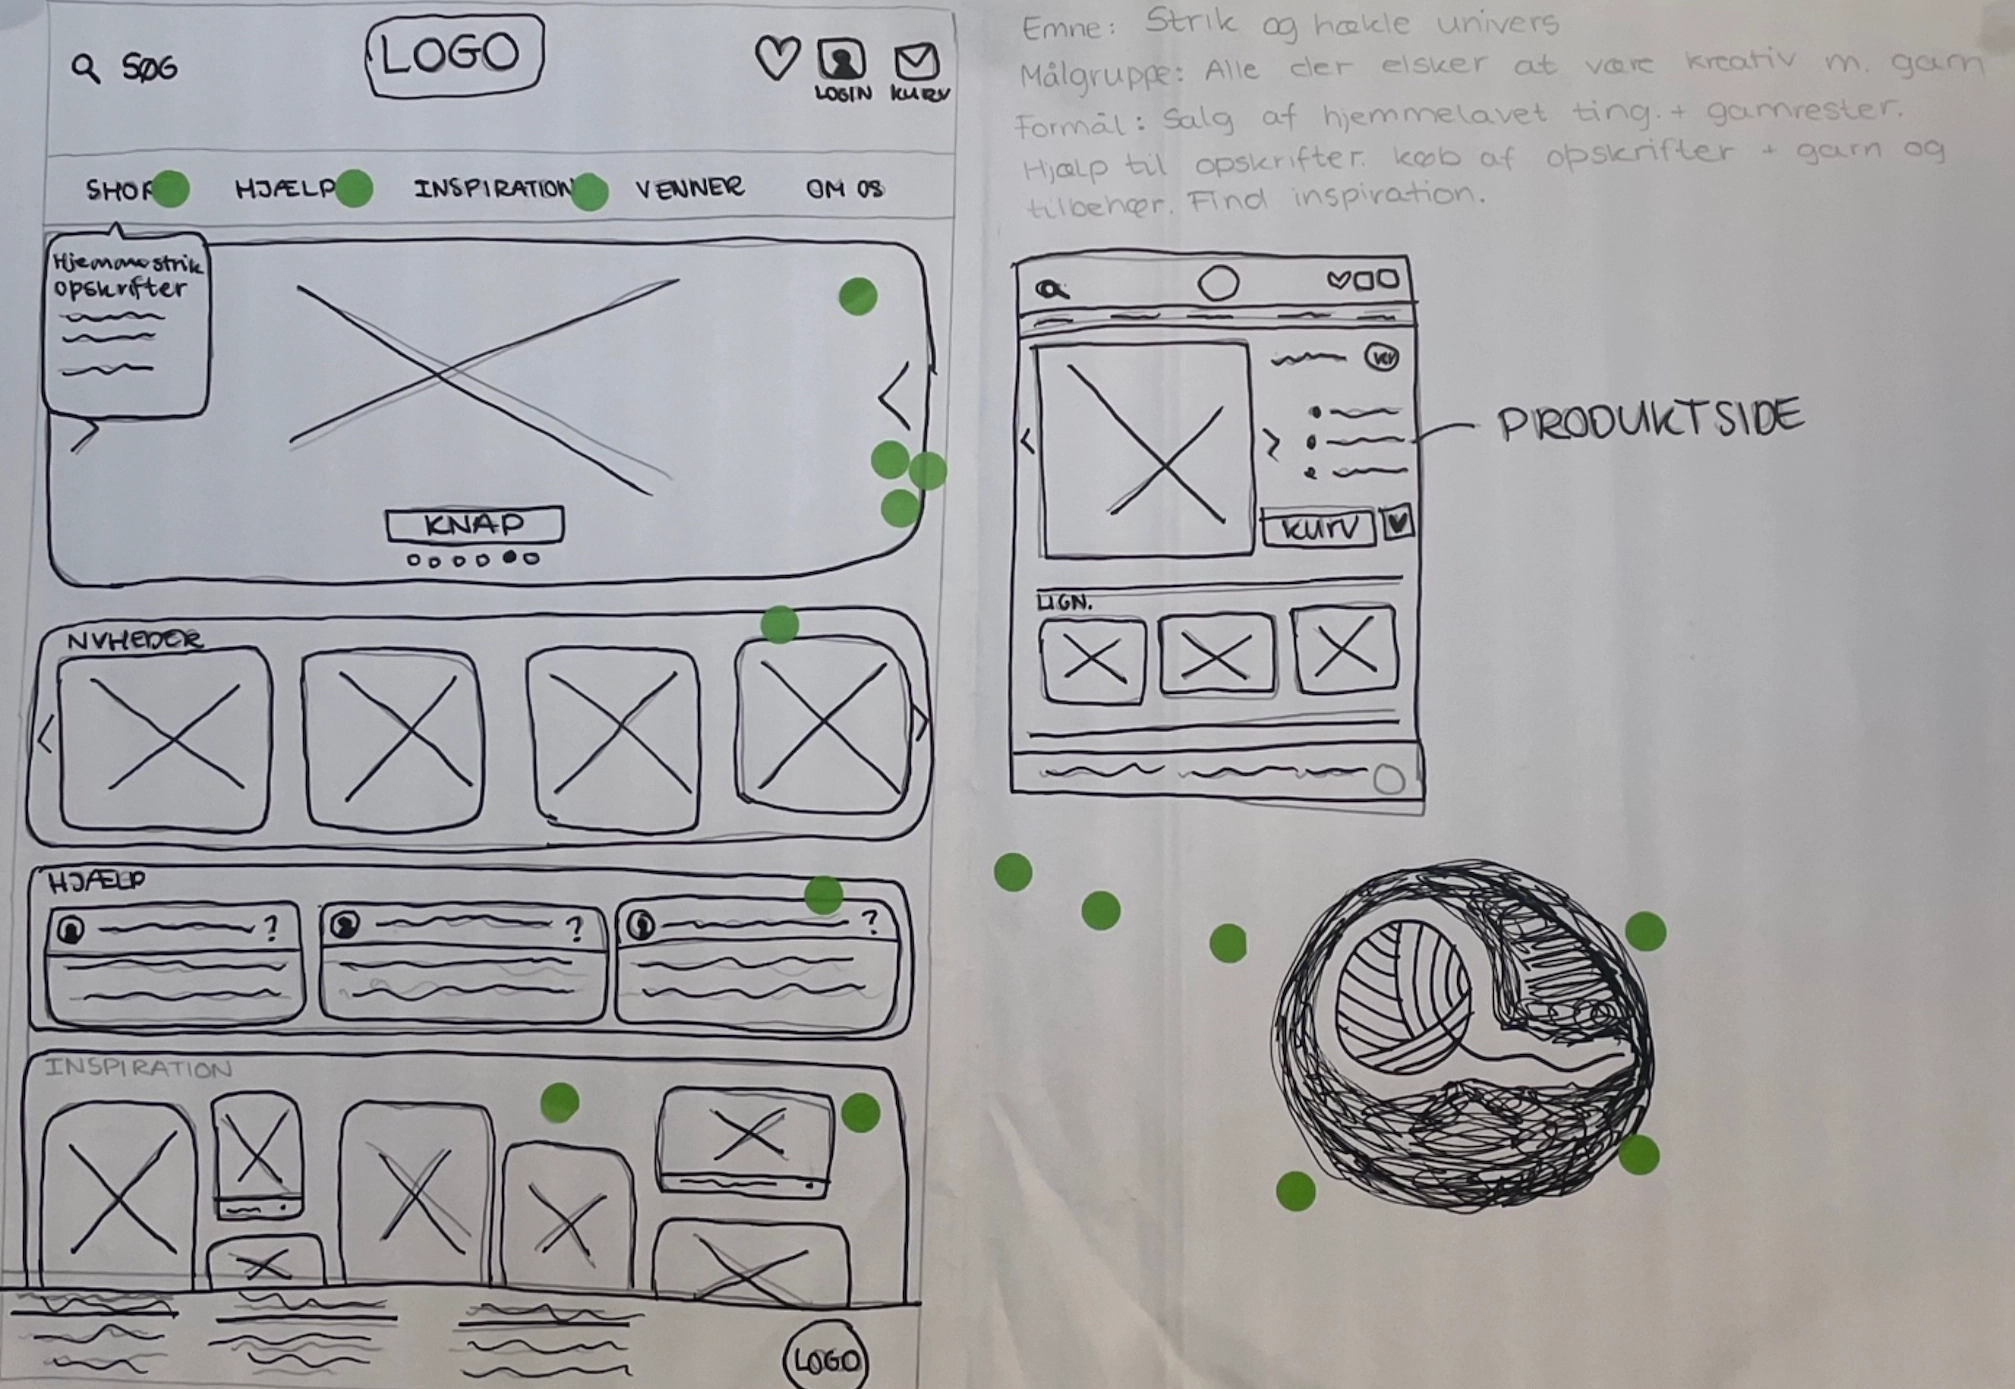 SØG
LOGO
LOGIN
KURV
SHOP
HJÆLP
INSPIRATION
VENNER
OM OS
Hjemmestrik
opskrifter
KNAP
NYHEDER
HJÆLP
?
?
?
INSPIRATION
LOGO
Emne: Strik og hækle univers
Målgruppe: Alle der elsker at være kreativ m. garn
Formål: Salg af hjemmelavet ting. + garnrester.
Hjælp til opskrifter. køb af opskrifter + garn og
tilbehør. Find inspiration.
PRODUKTSIDE
KURV
LIGN.